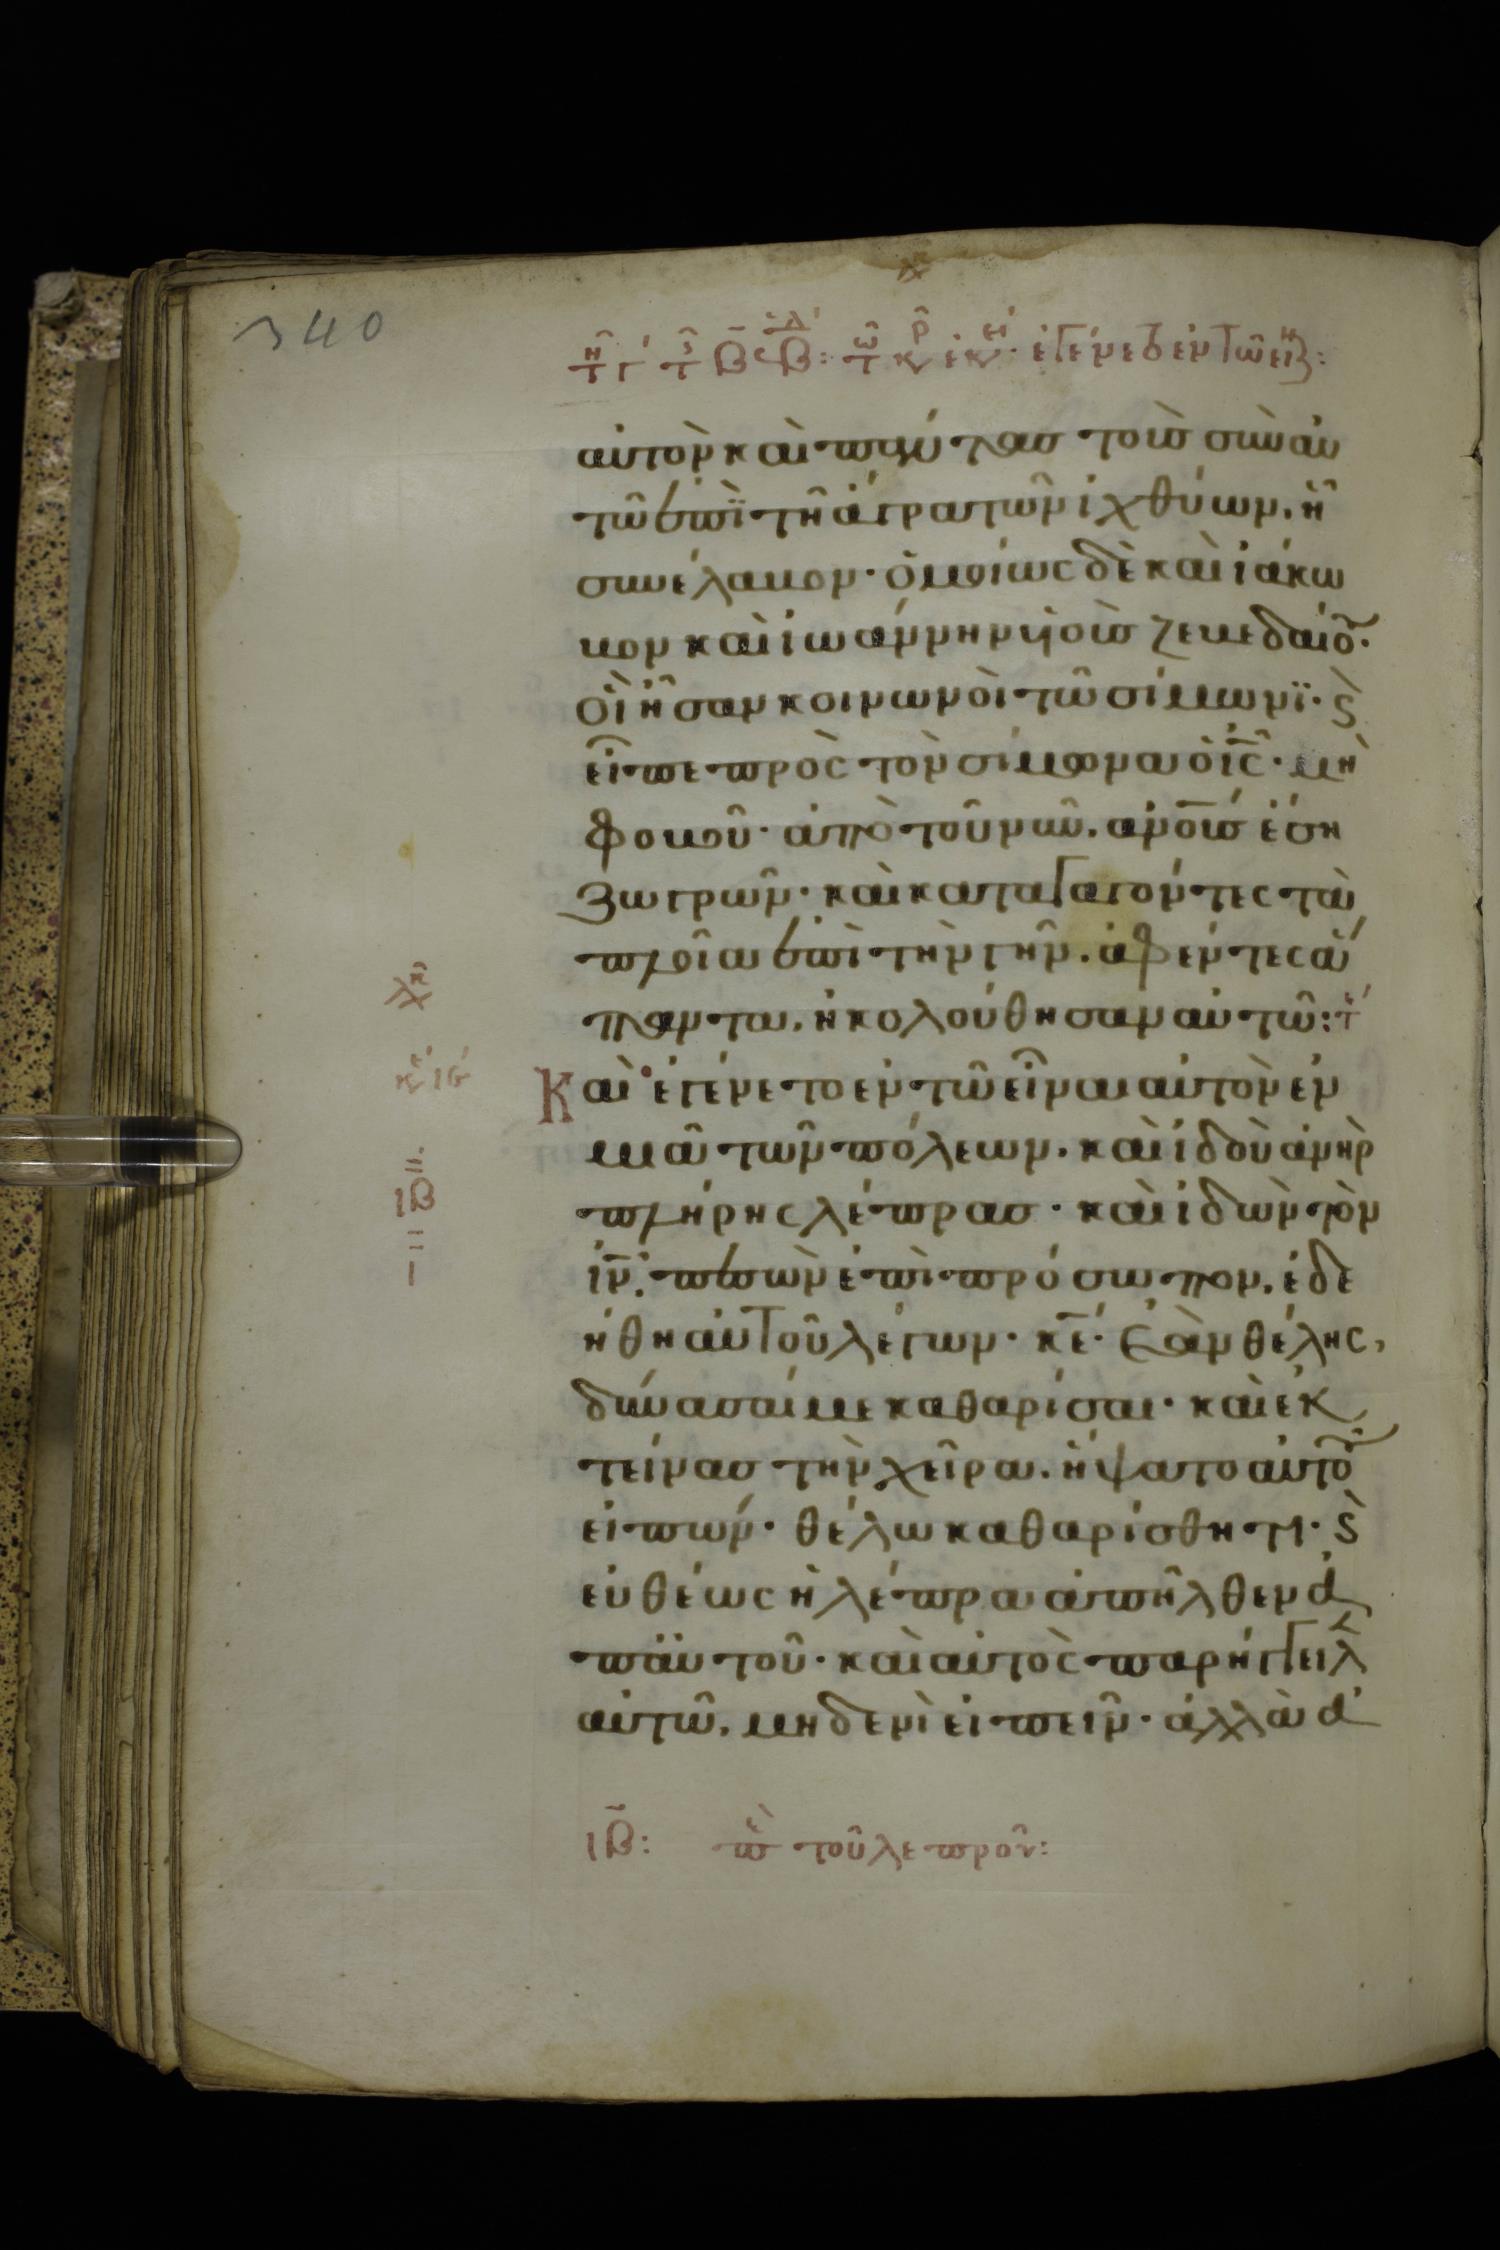 340
αὐτὸν καὶ πάντας τοῖς σὺν αὐ
τῶ ἐπὶ τῆ ἄγρα τῶν ἰχθύων. ἧ
συνέλαβον· ὁμοίως δὲ καὶ ἰάκω
βον καὶ ἰωάννην υἱοὺς ζεβεδαίου·
οἳ ἦσαν κοινωνοὶ τῶ σίμωνϊ· ϛ
εἶπε πρὸς τὸν σίμωνα ὁ ις̅· μὴ
φοβοῦ· ἀπὸ τοῦ νῦν. ανο̅υς ἔση
ζωγρῶν· καὶ καταγαγόντες τὰ
πλοῖα ἐπὶ τὴν γῆν. ἀφέντες ἅ
παντα. ἠκολούθησαν αὐτῶ:
Καὶ ἐγένετο ἐν τῶ εἶναι αὐτὸν ἐν
μιᾶ τῶν πόλεων. καὶ ἰδοὺ ἀνὴρ
πλήρης λέπρας· καὶ ἰδὼν τὸν
ιν̅. πεσὼν ἐπὶ πρόσωπον. ἐδε
ήθη αὐτοῦ λέγων· κε̅· ἐὰν θέλης,
δύνασαί με καθαρίσαι· καὶ ἐκ
τείνας τὴν χεῖρα. ἥψατο αὐτοῦ
εἰπών· θέλω καθαρίσθητι· ϛ
εὐθέως ἡ λέπρα ἀπῆλθεν ἀ
π αὐτοῦ· καὶ αὐτὸς παρήγγειλ
αὐτῶ. μηδενὶ εἰπεῖν· ἀλλὰ ἀ
ιβ̅
ιβ̅: π τοῦ λεπροῦ: